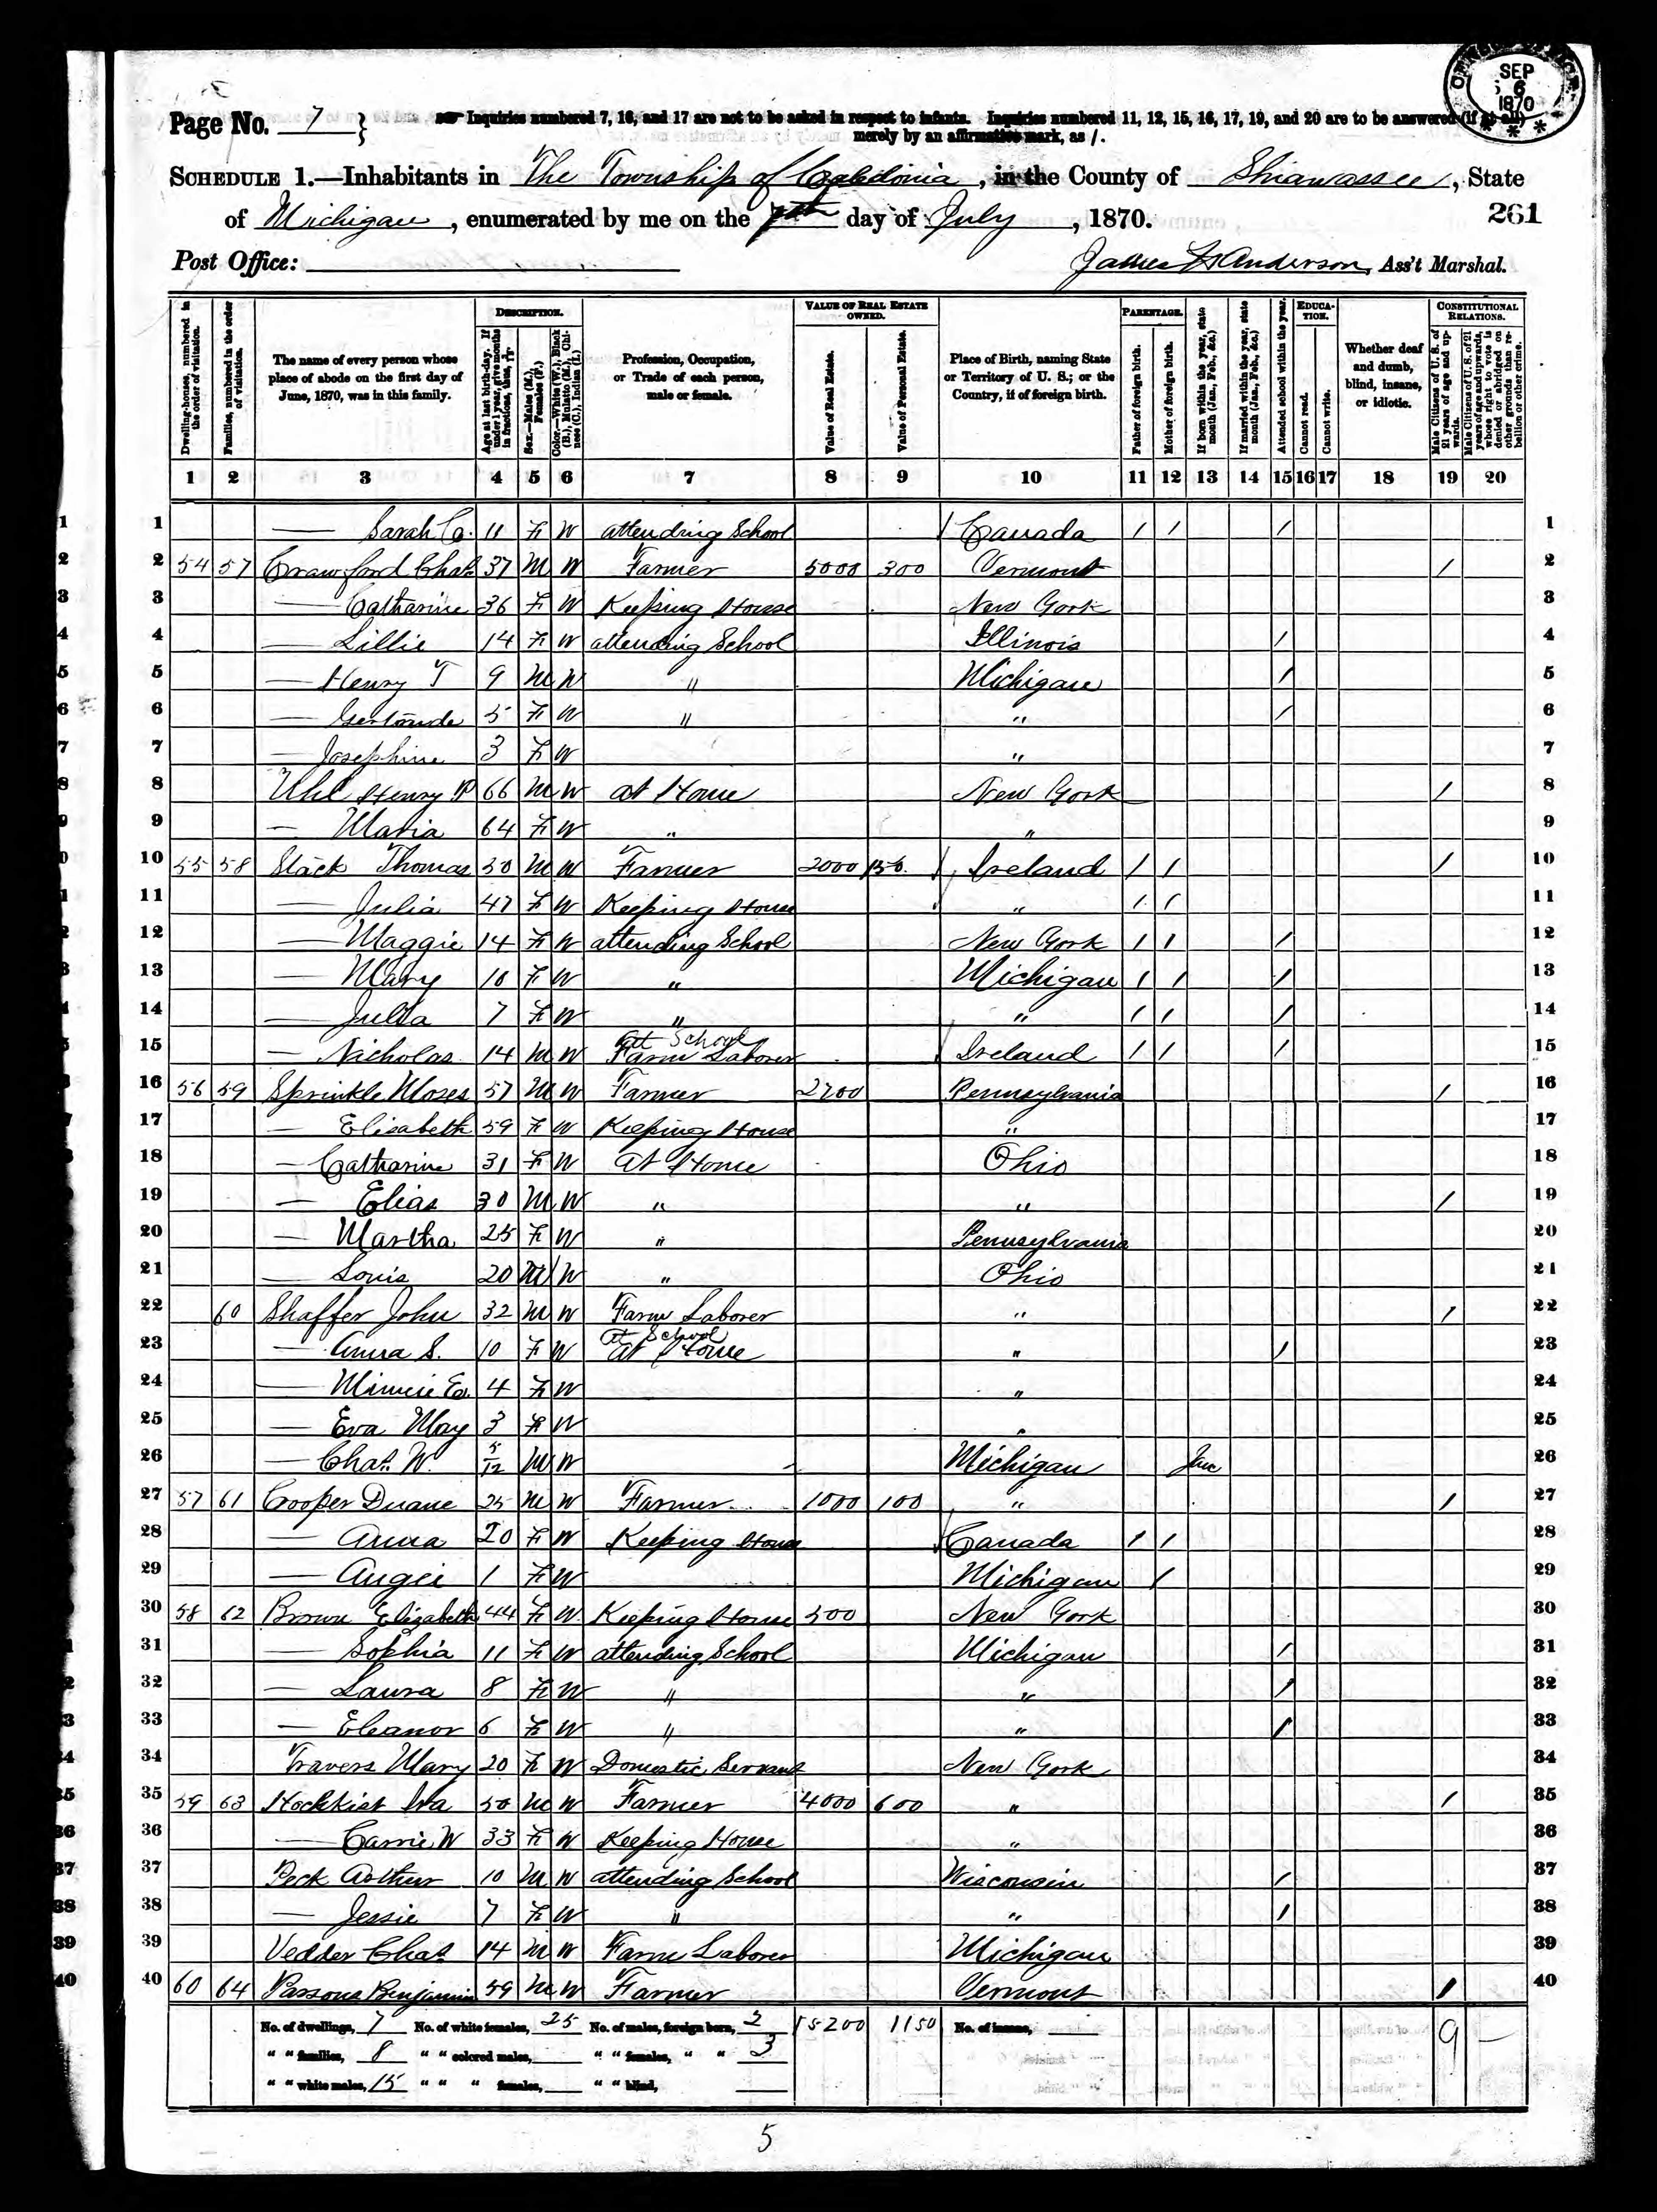 SEP 6 1870
Page No. 7 } Inquiries numbered 7, 16, and 17 are not to be asked in respect to infants. Inquiries numbered 11, 12, 15, 16, 17, 19, and 20 are to be answered (if at all)
merely by an affirmative mark, as /.
SCHEDULE 1.—Inhabitants in The Township of Caledonia, in the County of Shiawassee, State
of Michigan, enumerated by me on the 7th day of July, 1870.
261
Post Office:
James Anderson, Ass't Marshal.
Dwelling-houses, numbered in the order of visitation.
Families, numbered in the order of visitation.
The name of every person whose place of abode on the first day of June, 1870, was in this family.
DESCRIPTION.
Age at last birth-day. If under 1 year, give months in fractions, thus,
Sex.—Males (M.), Females (F.)
Color.—White (W.), Black (B.), Mulatto (M.), Chinese (C.), Indian (I.)
Profession, Occupation, or Trade of each person, male or female.
VALUE OF REAL ESTATE OWNED.
Value of Real Estate.
Value of Personal Estate.
Place of Birth, naming State or Territory of U. S.; or the Country, if of foreign birth.
PARENTAGE.
Father of foreign birth.
Mother of foreign birth.
If born within the year, state month (Jan., Feb., &c.)
If married within the year, state month (Jan., Feb., &c.)
Attended school within the year.
EDUCATION.
Cannot read.
Cannot write.
Whether deaf and dumb, blind, insane, or idiotic.
CONSTITUTIONAL RELATIONS.
Male Citizens of U. S. of 21 years of age and upwards.
Male Citizens of U. S. of 21 years of age and upwards, whose right to vote is denied or abridged on other grounds than rebellion or other crime.
1 2 3 4 5 6 7 8 9 10 11 12 13 14 15 16 17 18 19 20
1 — Sarah C. 11 F W attending School / Canada / / / 1
2 54 57 Crawford Chas. 37 M W Farmer 5000 300 Vermont / 2
3 — Catharine 36 F W Keeping House New York 3
4 — Lillie 14 F W attending School Illinois / 4
5 — Henry T 9 M W " Michigan / 5
6 — Gertrude 5 F W " " / 6
7 — Josephine 3 F W " 7
8 Uhl Henry P 66 M W at Home New York / 8
9 — Maria 64 F W " " 9
10 55 58 Stack Thomas 50 M W Farmer 2000 150 / Ireland / / / 10
11 — Julia 47 F W Keeping House / " / / 11
12 — Maggie 14 F W attending School New York / / / 12
13 — Mary 10 F W " Michigan / / / 13
14 — Julia 7 F W " " / / / 14
15 — Nicholas 14 M W at School Farm Laborer / Ireland / / / 15
16 56 59 Sprinkle Moses 57 M W Farmer 2700 Pennsylvania / 16
17 — Elisabeth 59 F W Keeping House " 17
18 — Catharine 31 F W At Home Ohio 18
19 — Elias 30 M W " " / 19
20 — Martha 25 F W " Pennsylvania 20
21 — Louis 20 M W " Ohio 21
22 60 Shaffer John 32 M W Farm Laborer " / 22
23 — Anna S. 10 F W At School At Home " / 23
24 — Minnie E. 4 F W " 24
25 — Eva May 3 F W " 25
26 — Chas. W. 5/12 M W Michigan Jan 26
27 57 61 Cooper Duane 25 M W Farmer 1000 100 " / 27
28 — Anna 20 F W Keeping House / Canada / / 28
29 — Angie 1 F W Michigan / 29
30 58 62 Brown Elizabeth 44 F W. Keeping House 500 New York 30
31 — Sophia 11 F W attending School Michigan / 31
32 — Laura 8 F W " " / 32
33 — Eleanor 6 F W " " / 33
34 Travers Mary 20 F W Domestic Servant New York 34
35 59 63 Hochkist Ira 50 M W Farmer 4000 600 " / 35
36 — Carrie W 33 F W Keeping House " 36
37 Peck Arthur 10 M W attending School Wisconsin / 37
38 — Jessie 7 F W " " / 38
39 Vedder Chas. 14 M W Farm Laborer Michigan 39
40 60 64 Parsons Benjamin 59 M W Farmer Vermont / 40
No. of dwellings, 7 No. of white females, 25 No. of males, foreign born, 2 15200 1150 No. of insane, 9 —
" " families, 8 " " colored males, " " females, " " 3
" " white males, 15 " " " females, " " blind,
5